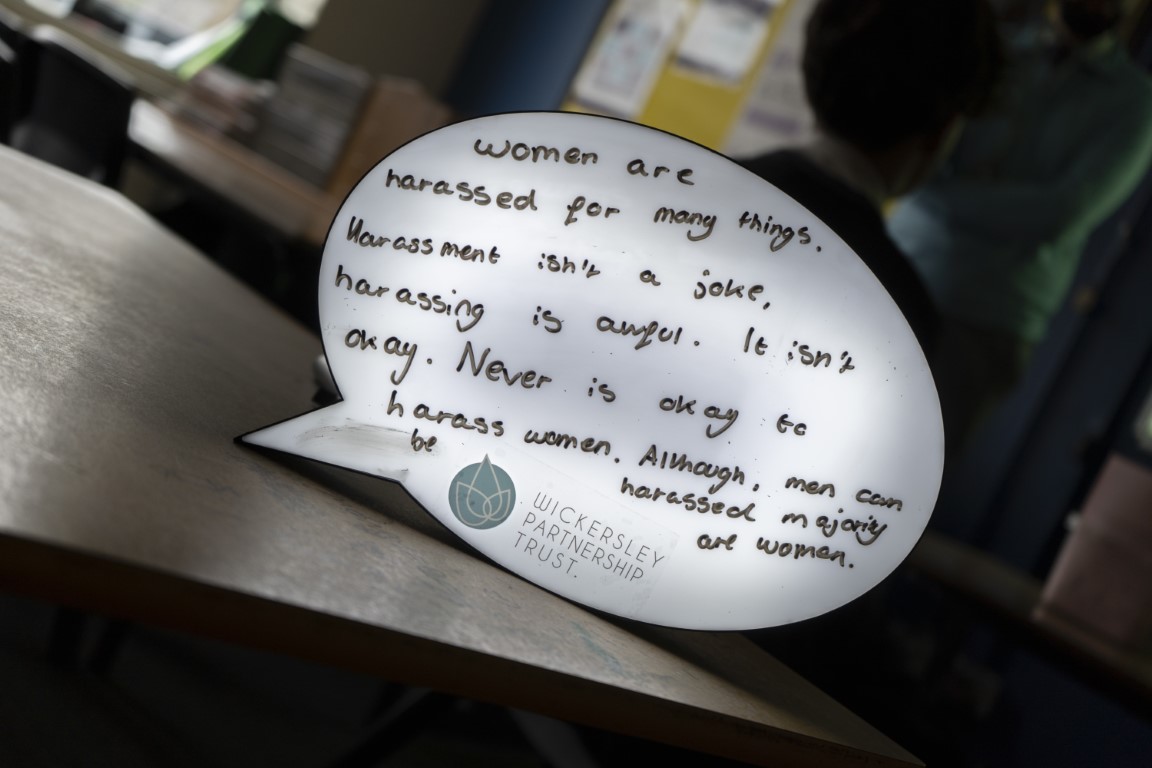 women are
harassed for many things.
Harassment isn't a joke,
harassing is awful. It isn't
okay. Never is okay to
harass women. Although, men can
be harassed majority
are women.
WICKERSLEY
PARTNERSHIP
TRUST.